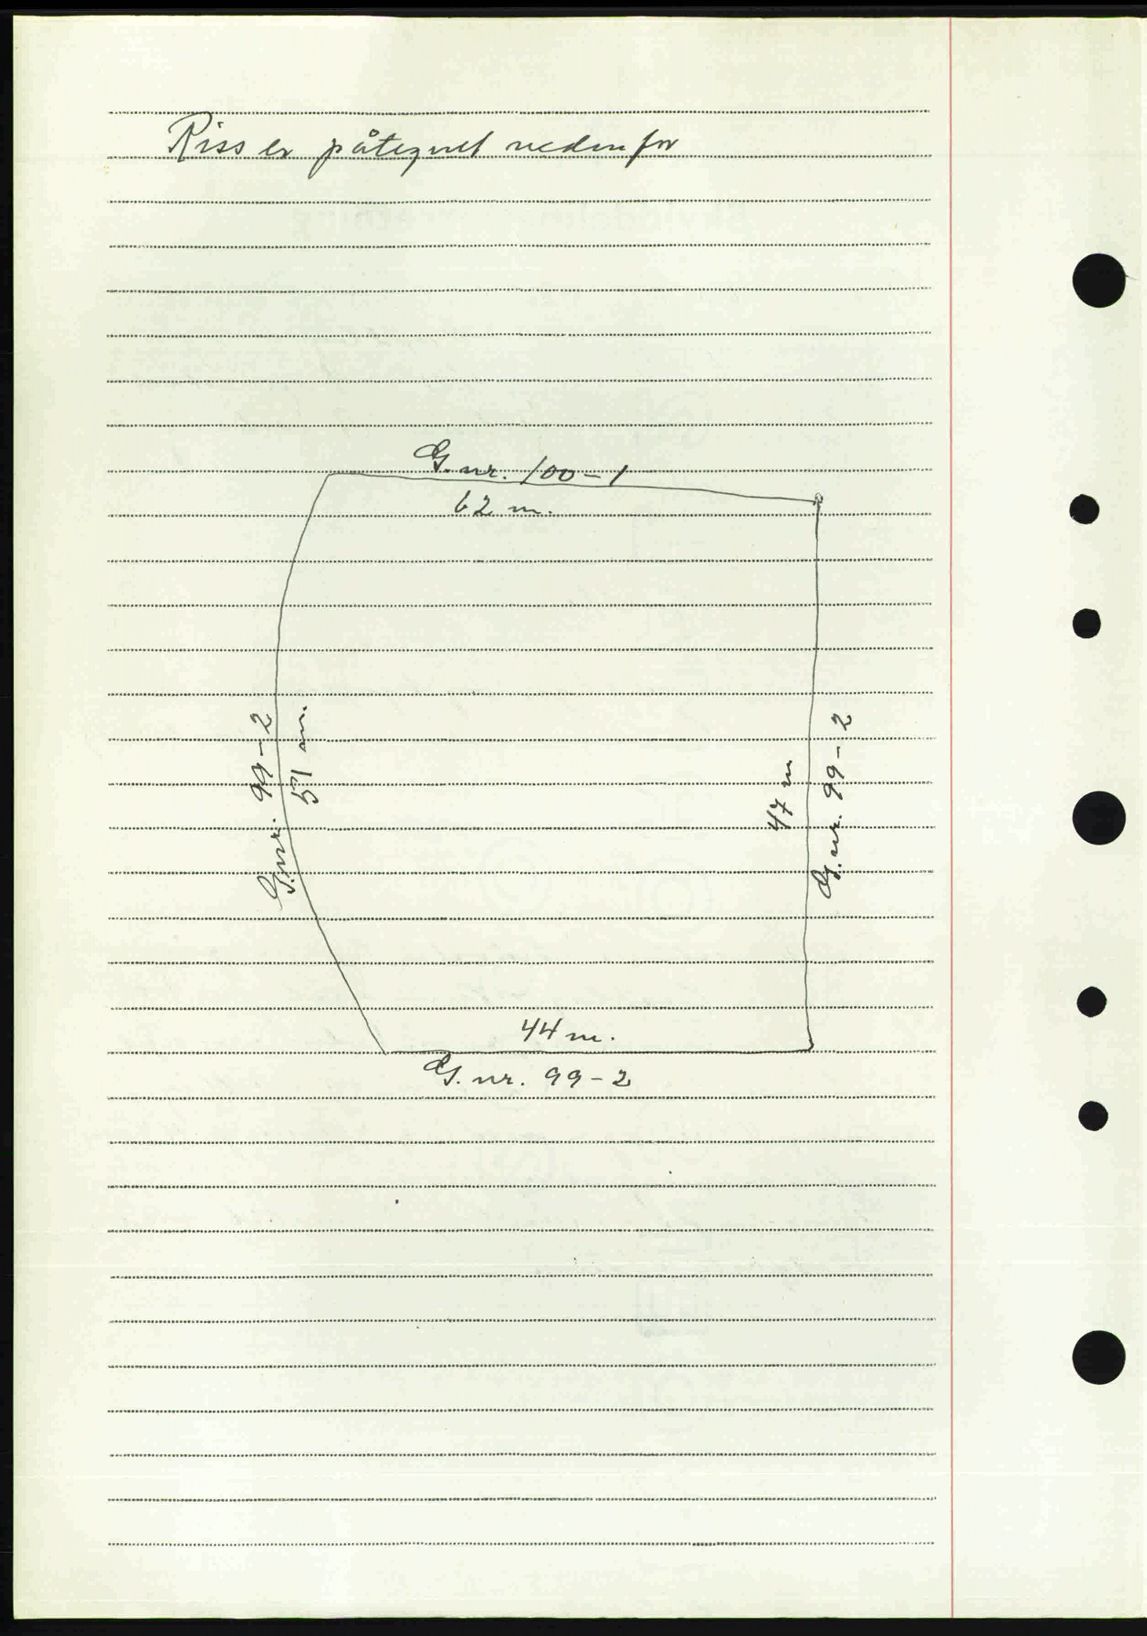 Riss er påtegnet nedenfor
G. nr. 100-1
62 m.
G. nr. 99-2
51 m.
47 m
G. nr. 99-2
44 m.
G. nr. 99-2